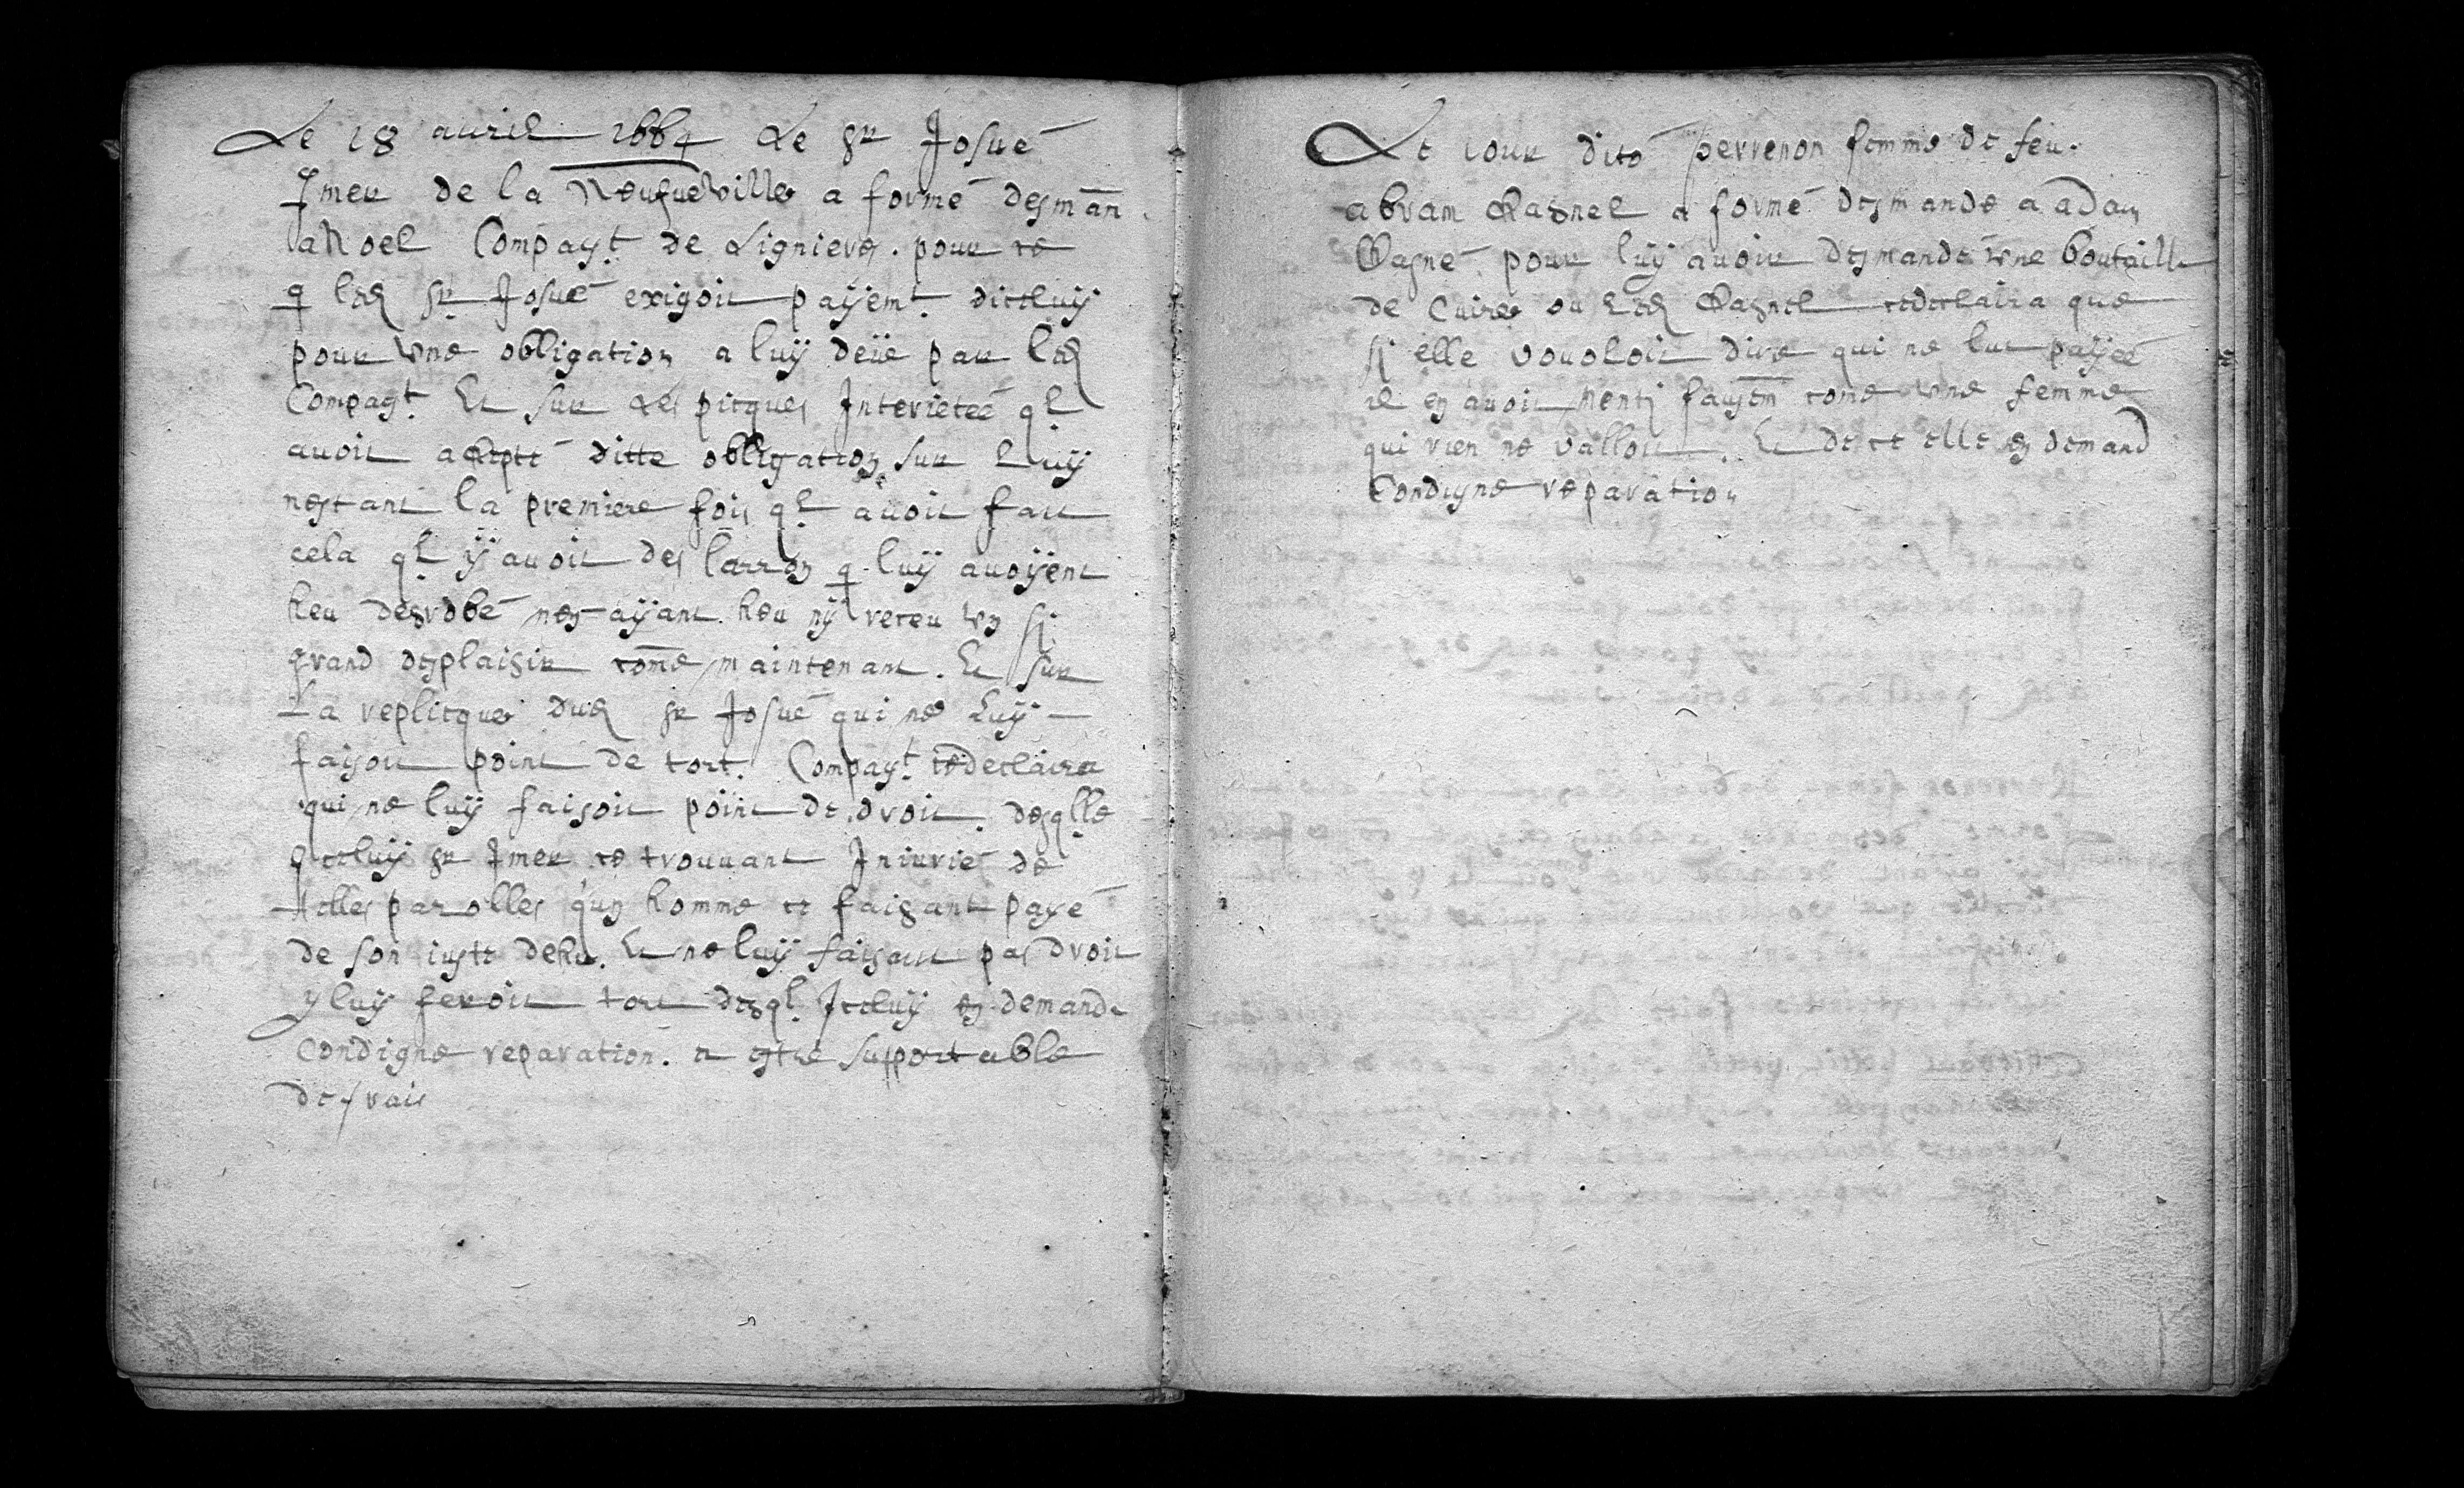 Le 18 auril 1664 Le Sr Josué
Jmer de la Neufueville a formé desman
a Noel Compagt de Lignieres. pour ce
q led Sr Josué exigoit payemt dicelluÿ
pour vne obligation a luÿ deüe par led
Compagt Et sur Les picques Interietée ql
avoit acepté ditte obligation sur Luÿ
nestant la premiere fois ql auoit fait
cela ql ÿ auoit des larron q luÿ auoÿent
heu desrobé nes aÿant heu nÿ receu vn si
grand desplaisir comē maintenant. Et sur
La replicque dud Sr Josué qui ne Luÿ
faisoit point de tort. Compagt declaira
qui ne luÿ faisoit point de droit. desqlle
icelluÿ Sr Jmer ce trouuant Iniurié de
telles parolles qun homme ce faisant payé
de son iuste dehu. Et ne luÿ faisant pas droit
y luÿ feroit tort desql Icelluÿ en demande
Condigne reparation. et estre supportable
de frais
Le iour dito perrenon femme de feu
abram Ragnel a formé desmande a adam
Ragne pour luÿ auoir desmande vne boutaille
de Cuire ou Led Ragnel declaira que
si elle vouoloit dire qui ne lut paÿeé
il en auoit menti comē vne femme
qui rien ne valloit. Et de ce elle en demand
Condigne reparation